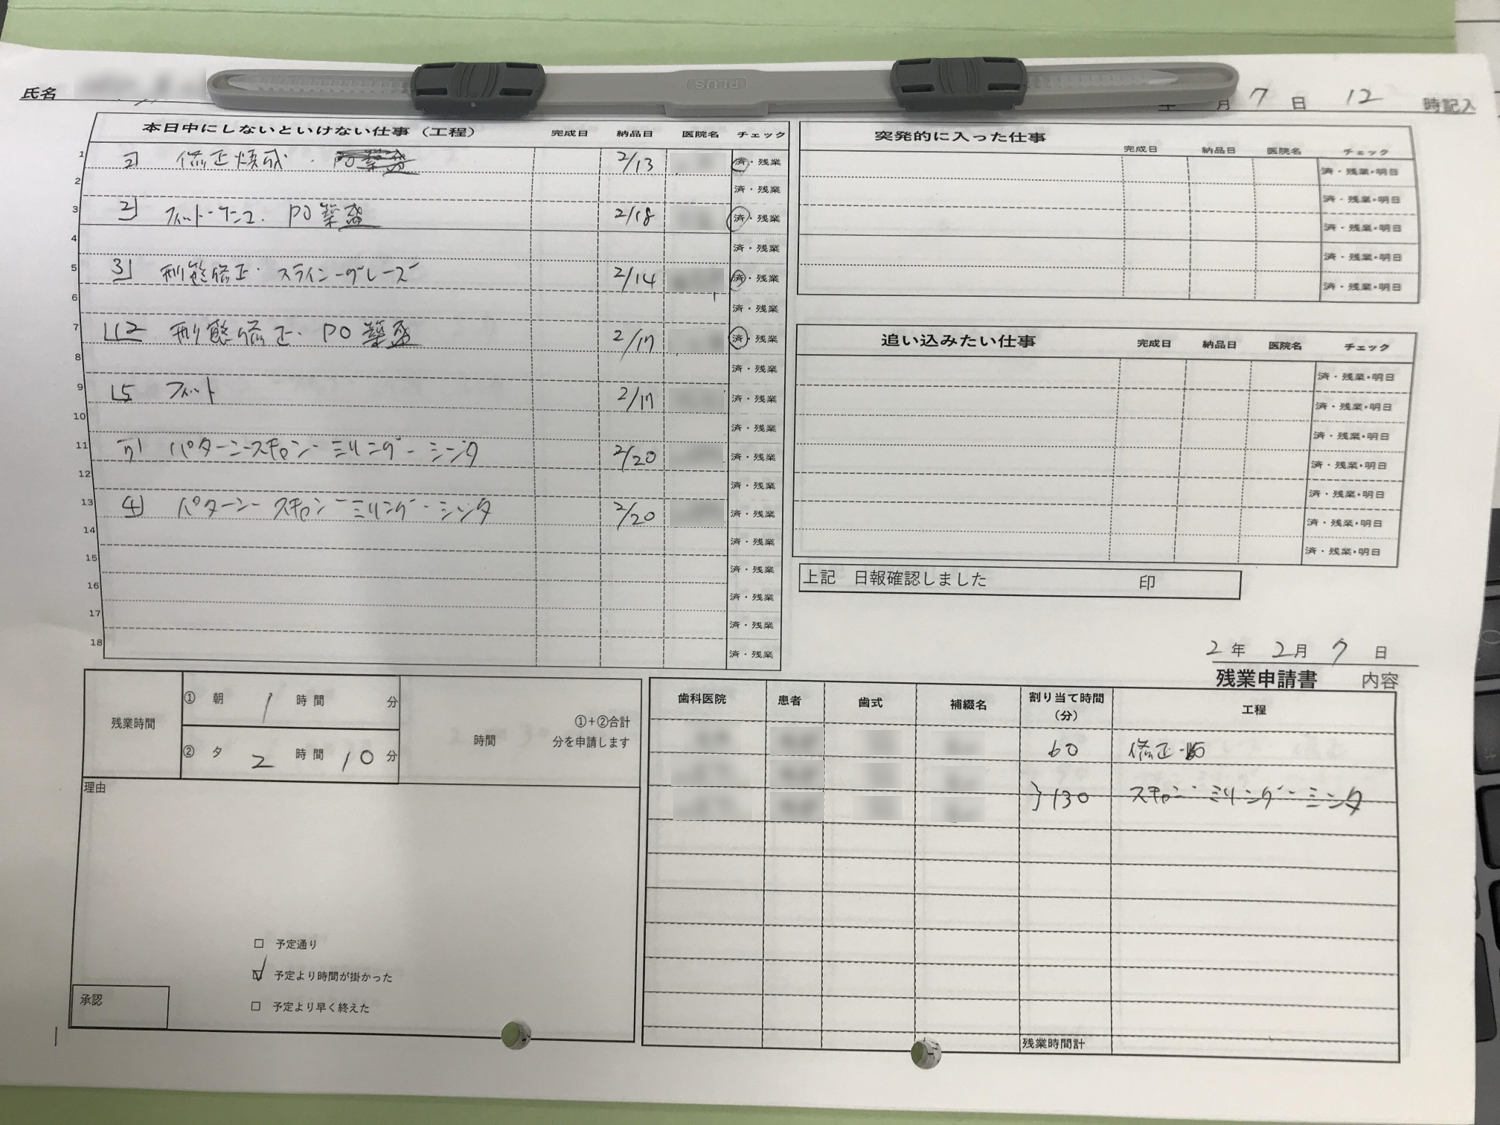 氏名
PLUS
月 7 日 12 時記入
本日中にしないといけない仕事（工程） 完成日 納品日 医院名 チェック
1 3 修正焼成・ 2/13 済・残業
2 済・残業
3 2 フィット・ PO築盛 2/18 済・残業
4 済・残業
5 3 形態修正・ステイン-グレーズ 2/14 済・残業
6 済・残業
7 L12 形態修正・PO築盛 2/17 済・残業
8 済・残業
9 L5 フィット 2/17 済・残業
10 済・残業
11 パターン-スキャン-ミリング-シンタ 2/20 済・残業
12 済・残業
13 4 パターン-スキャン-ミリング-シンタ 2/20 済・残業
14 済・残業
15 済・残業
16 済・残業
17 済・残業
18 済・残業
突発的に入った仕事 完成日 納品日 医院名 チェック
済・残業・明日
済・残業・明日
済・残業・明日
済・残業・明日
済・残業・明日
追い込みたい仕事 完成日 納品日 医院名 チェック
済・残業・明日
済・残業・明日
済・残業・明日
済・残業・明日
済・残業・明日
済・残業・明日
済・残業・明日
上記 日報確認しました 印
2年 2月 7日
残業申請書 内容
残業時間
① 朝 1 時間 分
② 夕 2 時間 10 分
①+②合計
時間 分を申請します
理由
□ 予定通り
☑ 予定より時間が掛かった
□ 予定より早く終えた
承認
歯科医院 患者 歯式 補綴名 割り当て時間（分） 工程
60 修正
}130 スキャン-ミリング-シンタ
残業時間計